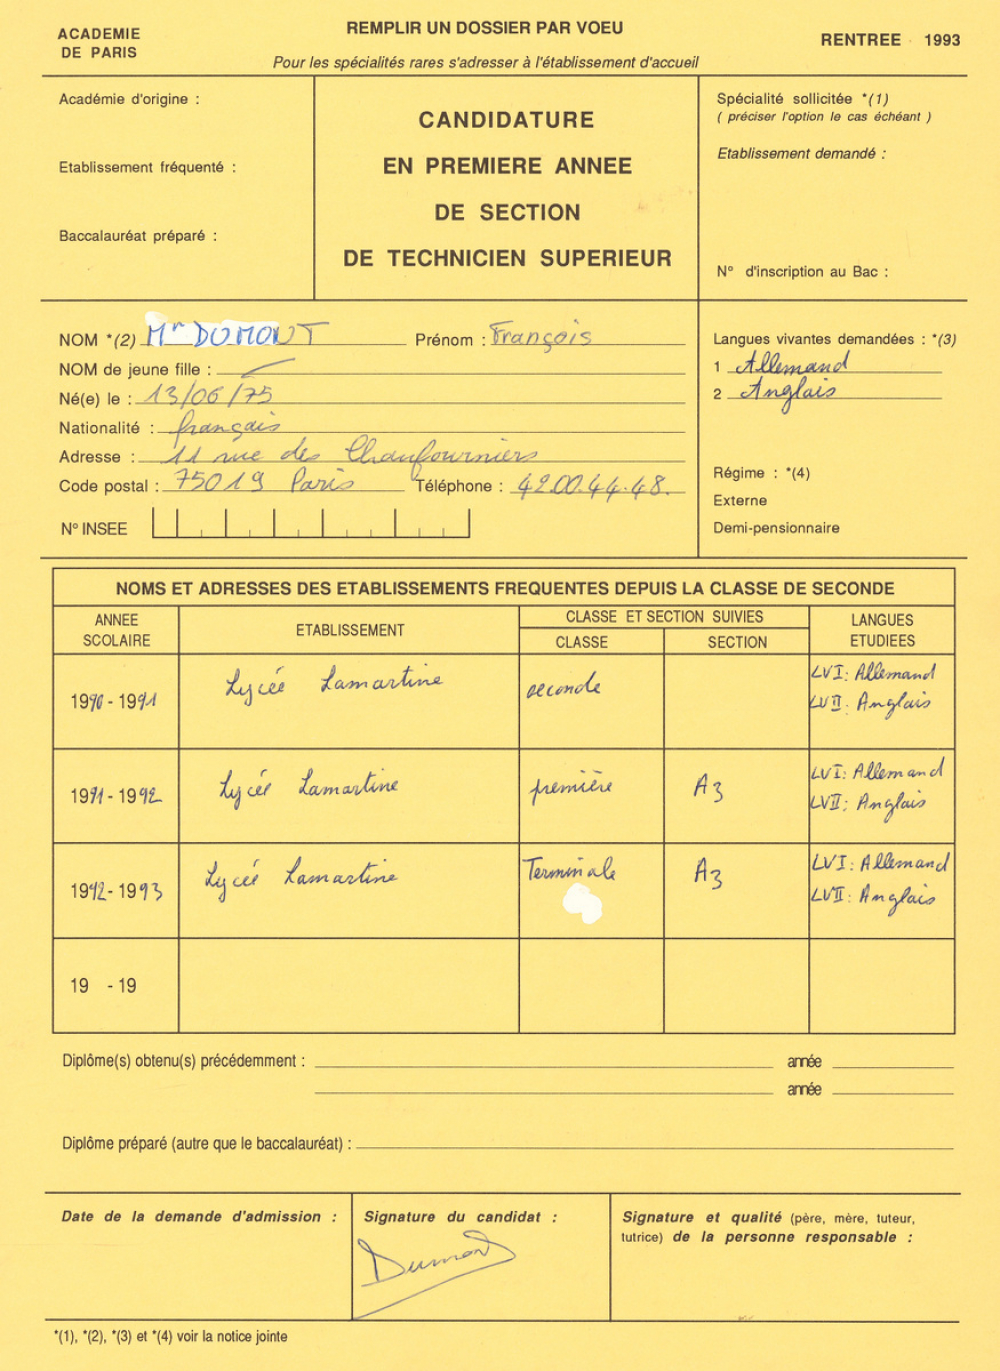 ACADEMIE
DE PARIS
REMPLIR UN DOSSIER PAR VOEU
Pour les spécialités rares s'adresser à l'établissement d'accueil
RENTREE 1993
Académie d'origine :
Etablissement fréquenté :
Baccalauréat préparé :
CANDIDATURE
EN PREMIERE ANNEE
DE SECTION
DE TECHNICIEN SUPERIEUR
Spécialité sollicitée *(1)
( préciser l'option le cas échéant )
Etablissement demandé :
N° d'inscription au Bac :
NOM *(2) Mr DUMONT Prénom : François
NOM de jeune fille : —
Né(e) le : 13/06/75
Nationalité : français
Adresse : 11 rue des Chaufourniers
Code postal : 75019 Paris Téléphone : 42.00.44.48.
N° INSEE
Langues vivantes demandées : *(3)
1 Allemand
2 Anglais
Régime : *(4)
Externe
Demi-pensionnaire
NOMS ET ADRESSES DES ETABLISSEMENTS FREQUENTES DEPUIS LA CLASSE DE SECONDE
ANNEE
SCOLAIRE
ETABLISSEMENT
CLASSE ET SECTION SUIVIES
CLASSE SECTION
LANGUES
ETUDIEES
1990 - 1991 Lycée Lamartine seconde LVI : Allemand
LVII : Anglais
1991 - 1992 Lycée Lamartine première A3 LVI : Allemand
LVII : Anglais
1992 - 1993 Lycée Lamartine Terminale A3 LVI : Allemand
LVII : Anglais
19 - 19
Diplôme(s) obtenu(s) précédemment : année
année
Diplôme préparé (autre que le baccalauréat) :
Date de la demande d'admission :
Signature du candidat :
Dumont
Signature et qualité (père, mère, tuteur,
tutrice) de la personne responsable :
*(1), *(2), *(3) et *(4) voir la notice jointe